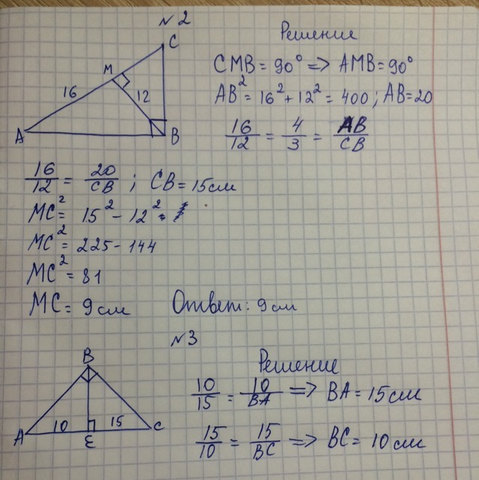 №2
Решение
C
M
16
12
A
B
CMB = 90° => AMB = 90°
AB² = 16² + 12² = 400 ; AB = 20
16/12 = 4/3 = AB/CB
16/12 = 20/CB ; CB = 15 см
MC² = 15² - 12² =
MC² = 225 - 144
MC² = 81
MC = 9 см
Ответ: 9 см
№3
Решение
B
10
15
A
E
C
10/15 = 10/BA => BA = 15 см
15/10 = 15/BC => BC = 10 см